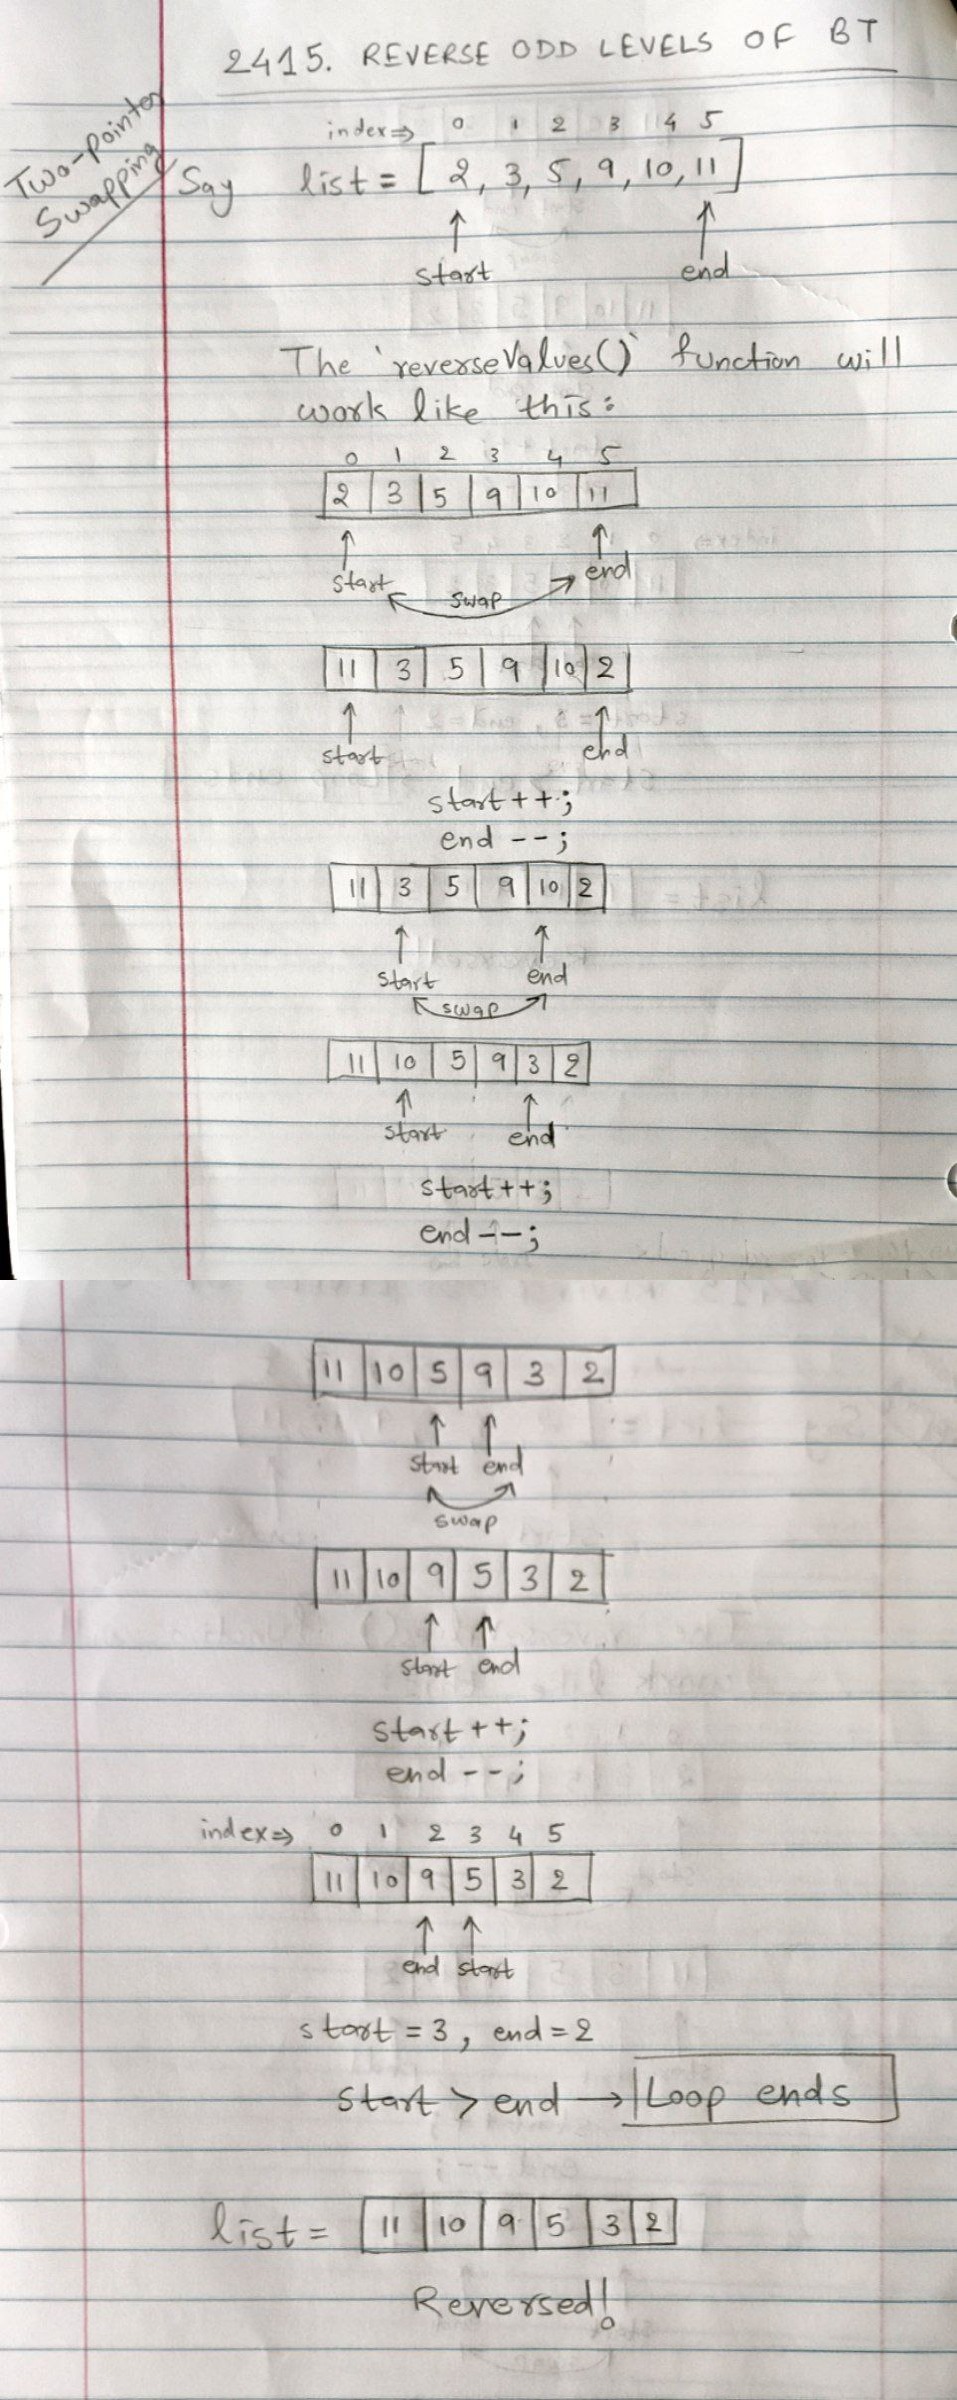 2415. REVERSE ODD LEVELS OF BT
Two-pointer
Swapping
index⇒ 0 1 2 3 4 5
Say list = [2, 3, 5, 9, 10, 11]
start end
The `reverseValues()` function will
work like this:
0 1 2 3 4 5
2 3 5 9 10 11
start end
swap
11 3 5 9 10 2
start end
start++;
end--;
11 3 5 9 10 2
start end
swap
11 10 5 9 3 2
start end
start++;
end--;
11 10 5 9 3 2
start end
swap
11 10 9 5 3 2
start end
start++;
end--;
index⇒ 0 1 2 3 4 5
11 10 9 5 3 2
end start
start = 3, end = 2
start > end → Loop ends
list = 11 10 9 5 3 2
Reversed!